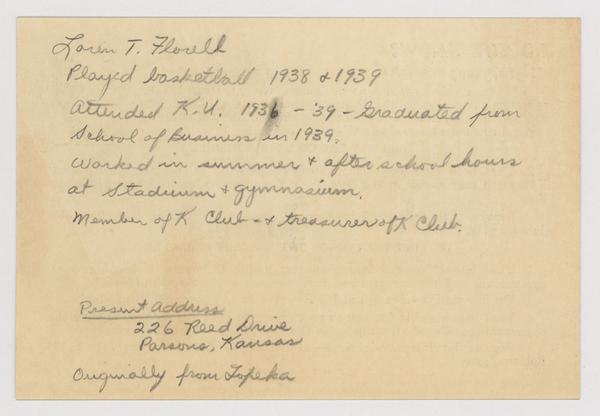 Loren T. Florell
Played basketball 1938 & 1939
Attended K.U. 1936 - '39 - Graduated from
School of Business in 1939.
Worked in summer & after school hours
at Stadium & gymnasium.
Member of K Club - & treasurer of K Club.
Present Address
226 Reed Drive
Parsons, Kansas
Originally from Topeka